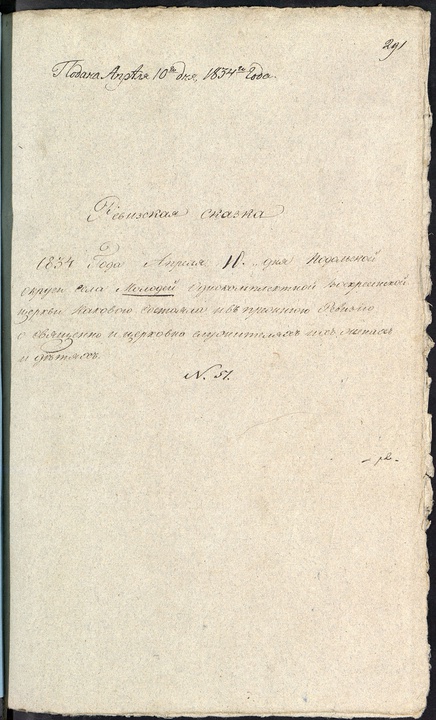 291
Подана Апрѣля 10го дня, 1834го Года.
Ревизская сказка
1834 Года Апреля 10. дня Подольской
округи села Молодей Однокомплектной Воскресенской
церкви каковаго состояла в прежнюю Ревизию
о священно и церковно служителяхъ ихъ женахъ
и дѣтяхъ.
N. 51.